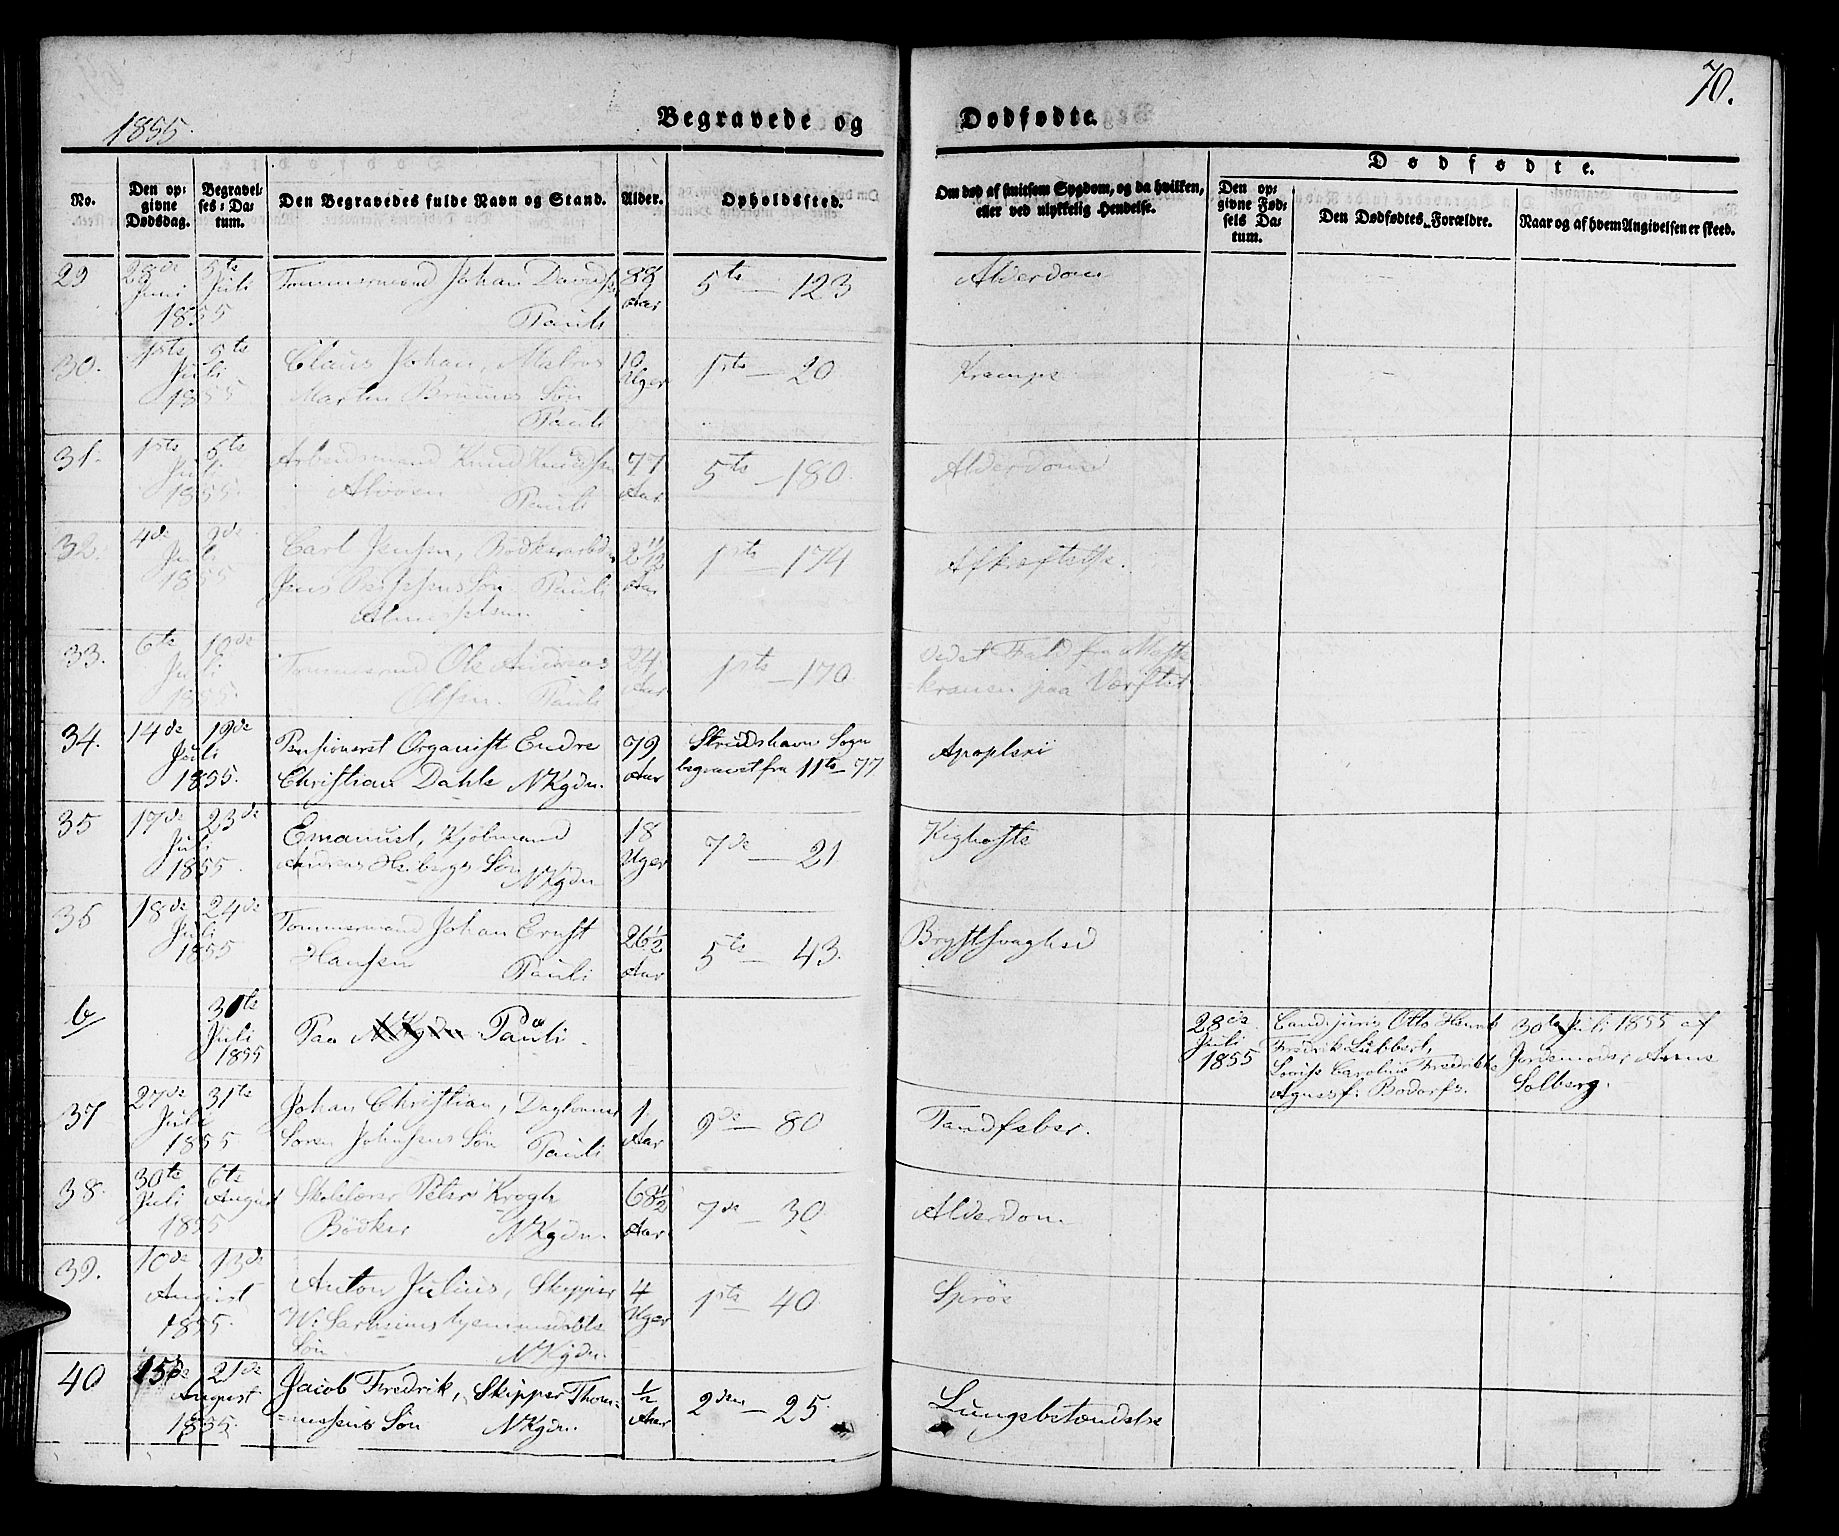 70.
1855.
Begravede og Dødfødte.
No.
Den opgivne Dødsdag.
Begravelses-Datum.
Den Begravedes fulde Navn og Stand.
Alder.
Opholdssted.
Om død af smitsom Sygdom, og da hvilken, eller ved ulykkelig Hendelse.
Dødfødte.
Den opgivne Fødsels Datum.
Den Dødfødtes Forældre.
Naar og af hvem Angivelsen er skeed.
29 28de Juni 5te Juli Tømmermand Johan Davidsen 88 Aar 5te — 123 Alderdom
1855 Pauli
30. 1ste 5te Claus Johan, Matros 10 Uger 1ste — 20 Krampe
Juli Martin Søn
1855 Pauli
31. 1ste 5te Arbeidsmand Knud Knudsen 77 5te — 180. Alderdom
Juli 1855. Alvøen Pauli Aar
32. 4de 9de Carl Jensen, 2 11/12 1ste — 174 Afkræftelse.
Juli Jens Søn Pauli Aar
1855
33. 6te 10de Tømmermand Ole Andreas 24 1ste — 170 vedet Fald fra Mast-
Juli 1855. Olsen. Pauli Aar kransen paa Værftet
34. 14de 19de Pensioneret Organist Endre 79 Strudshavn Sogn Apoplexi
Juli
1855. Christian Dahle NKgdn. Aar begravet fra 11te — 77
35 17de 23de Emanuel, 18 7de — 21 Kighoste
Juli 1855 Andreas Heibergs Søn NKgdn Uger
36 18de 24de Tømmermand Johan Ernst 26½ 5te — 43. Brystsvaghed
Juli 1855 Hansen Pauli Aar
6 30te Juli 1855 Paa NKgdn Pauli
28de Juli 1855
Cand. juris Otto Henrik
Fredrik Lübbert,
Lovise Caroline Fredrikke
Agnes f. Bodorfs.
30te Juli 1855 af
Jordemoder Anne
Solberg.
37 27de 31te Johan Christian, Daglønner 1 9de — 80 Tandfeber.
Juli 1855 Søren Johnsens Søn Pauli Aar
38. 30te 6te Skolelærer Peter Krogh 68½ 7de — 30 Alderdom.
Juli August 1855 Bödker NKgdn. Aar
39. 10de 13de Anton Julius, Skipper 4 1ste — 40 Spröe
August 1855 W. hjemmedøbte Uger
Søn. NKgdn.
40 15de 21de Jacob Fredrik, Skipper Thom- ½ 2den — 25. Lungebetændelse
August
1855. mesens Søn NKgdn. Aar